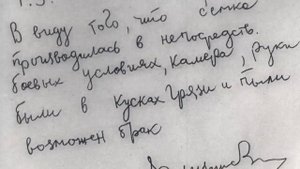 В виду того, что съемка
производилась в непосредств.
боевых условиях, камера, руки
были в кусках грязи и пыли
возможен брак